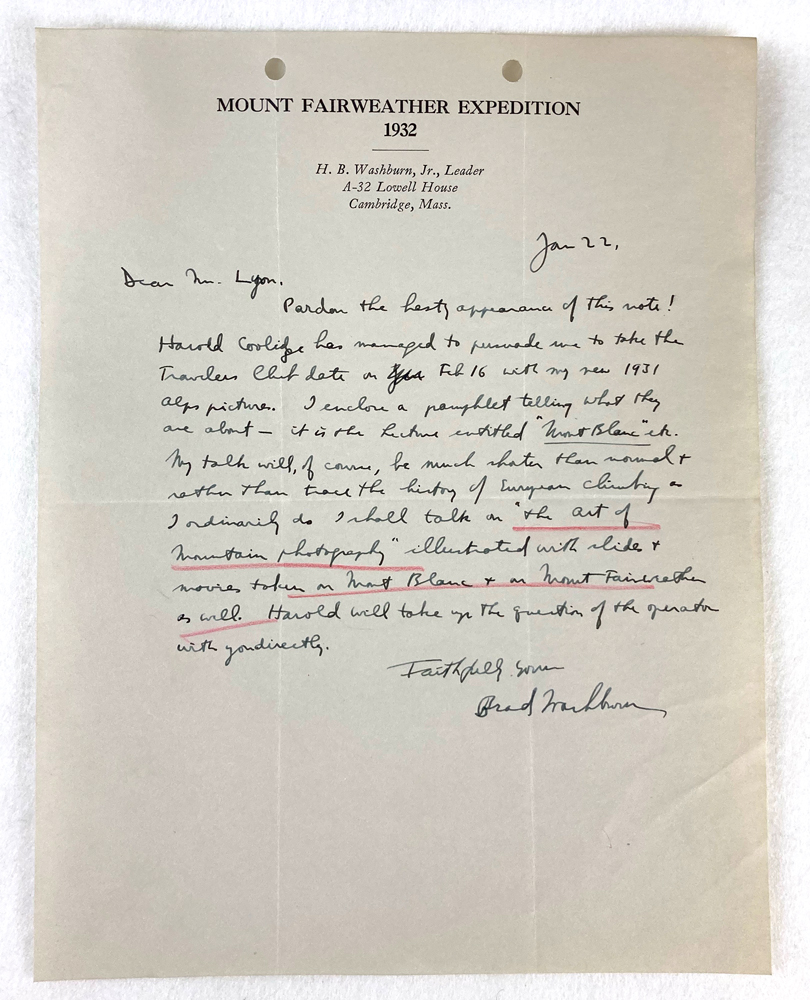 MOUNT FAIRWEATHER EXPEDITION
1932
H. B. Washburn, Jr., Leader
A-32 Lowell House
Cambridge, Mass.
Jan 22,
Dear Mr. Lyon,
Pardon the hasty appearance of this note!
Harold Coolidge has managed to persuade me to take the
Travelers Club date on Feb 16 with my new 1931
Alps pictures. I enclose a pamphlet telling what they
are about — it is the lecture entitled "Mont Blanc" etc.
My talk will, of course, be much shorter than normal +
rather than trace the history of European climbing as
I ordinarily do I shall talk on "the art of
Mountain photography" illustrated with slides +
movies taken on Mont Blanc + on Mount Fairweather
as well. Harold will take up the question of the operator
with you directly.
Faithfully yours
Brad Washburn